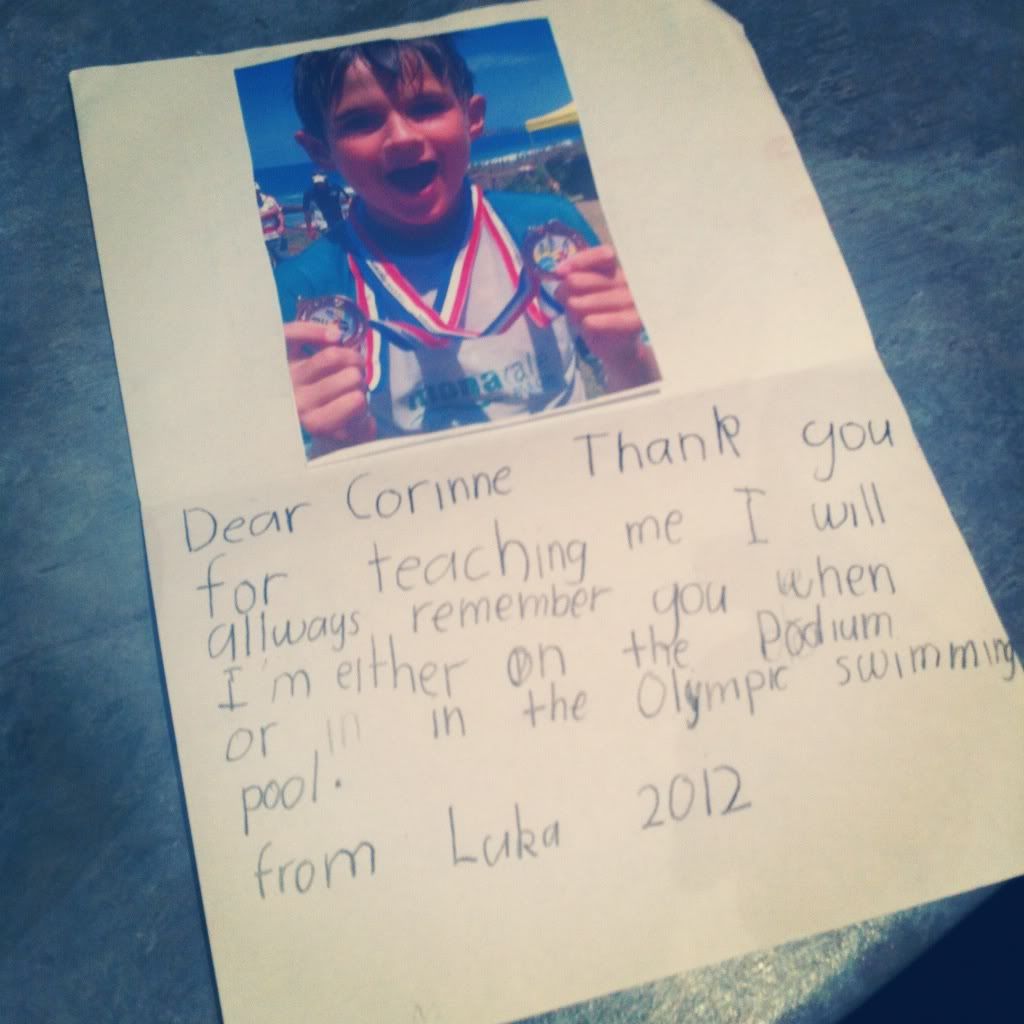 Dear Corinne Thank you
for teaching me I will
allways remember you when
I'm either on the Podium
or in in the Olympic swimming
pool.
from Luka 2012